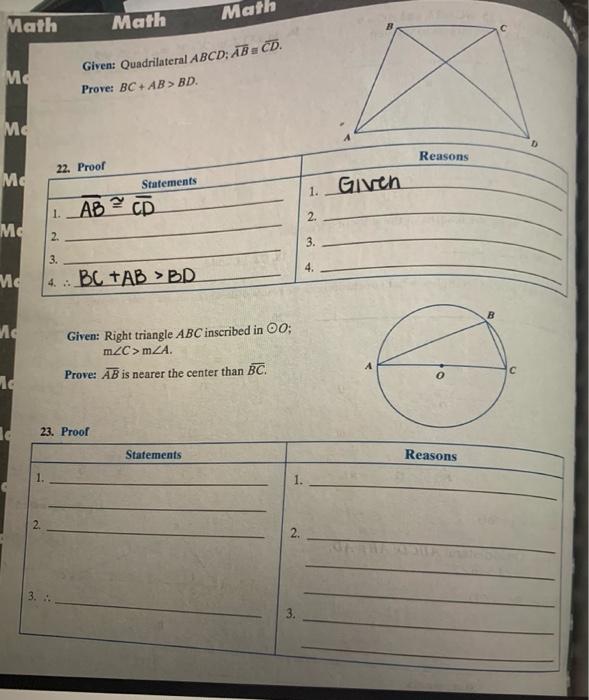 Math Math Math
Given: Quadrilateral ABCD; AB ≅ CD.
Prove: BC + AB > BD.
B C
A D
22. Proof
Statements Reasons
1. AB ≅ CD 1. Given
2. 2.
3. 3.
4. ∴ BC + AB > BD 4.
Given: Right triangle ABC inscribed in ⊙O;
m∠C > m∠A.
Prove: AB is nearer the center than BC.
B
A O C
23. Proof
Statements Reasons
1. 1.
2. 2.
3. ∴ 3.